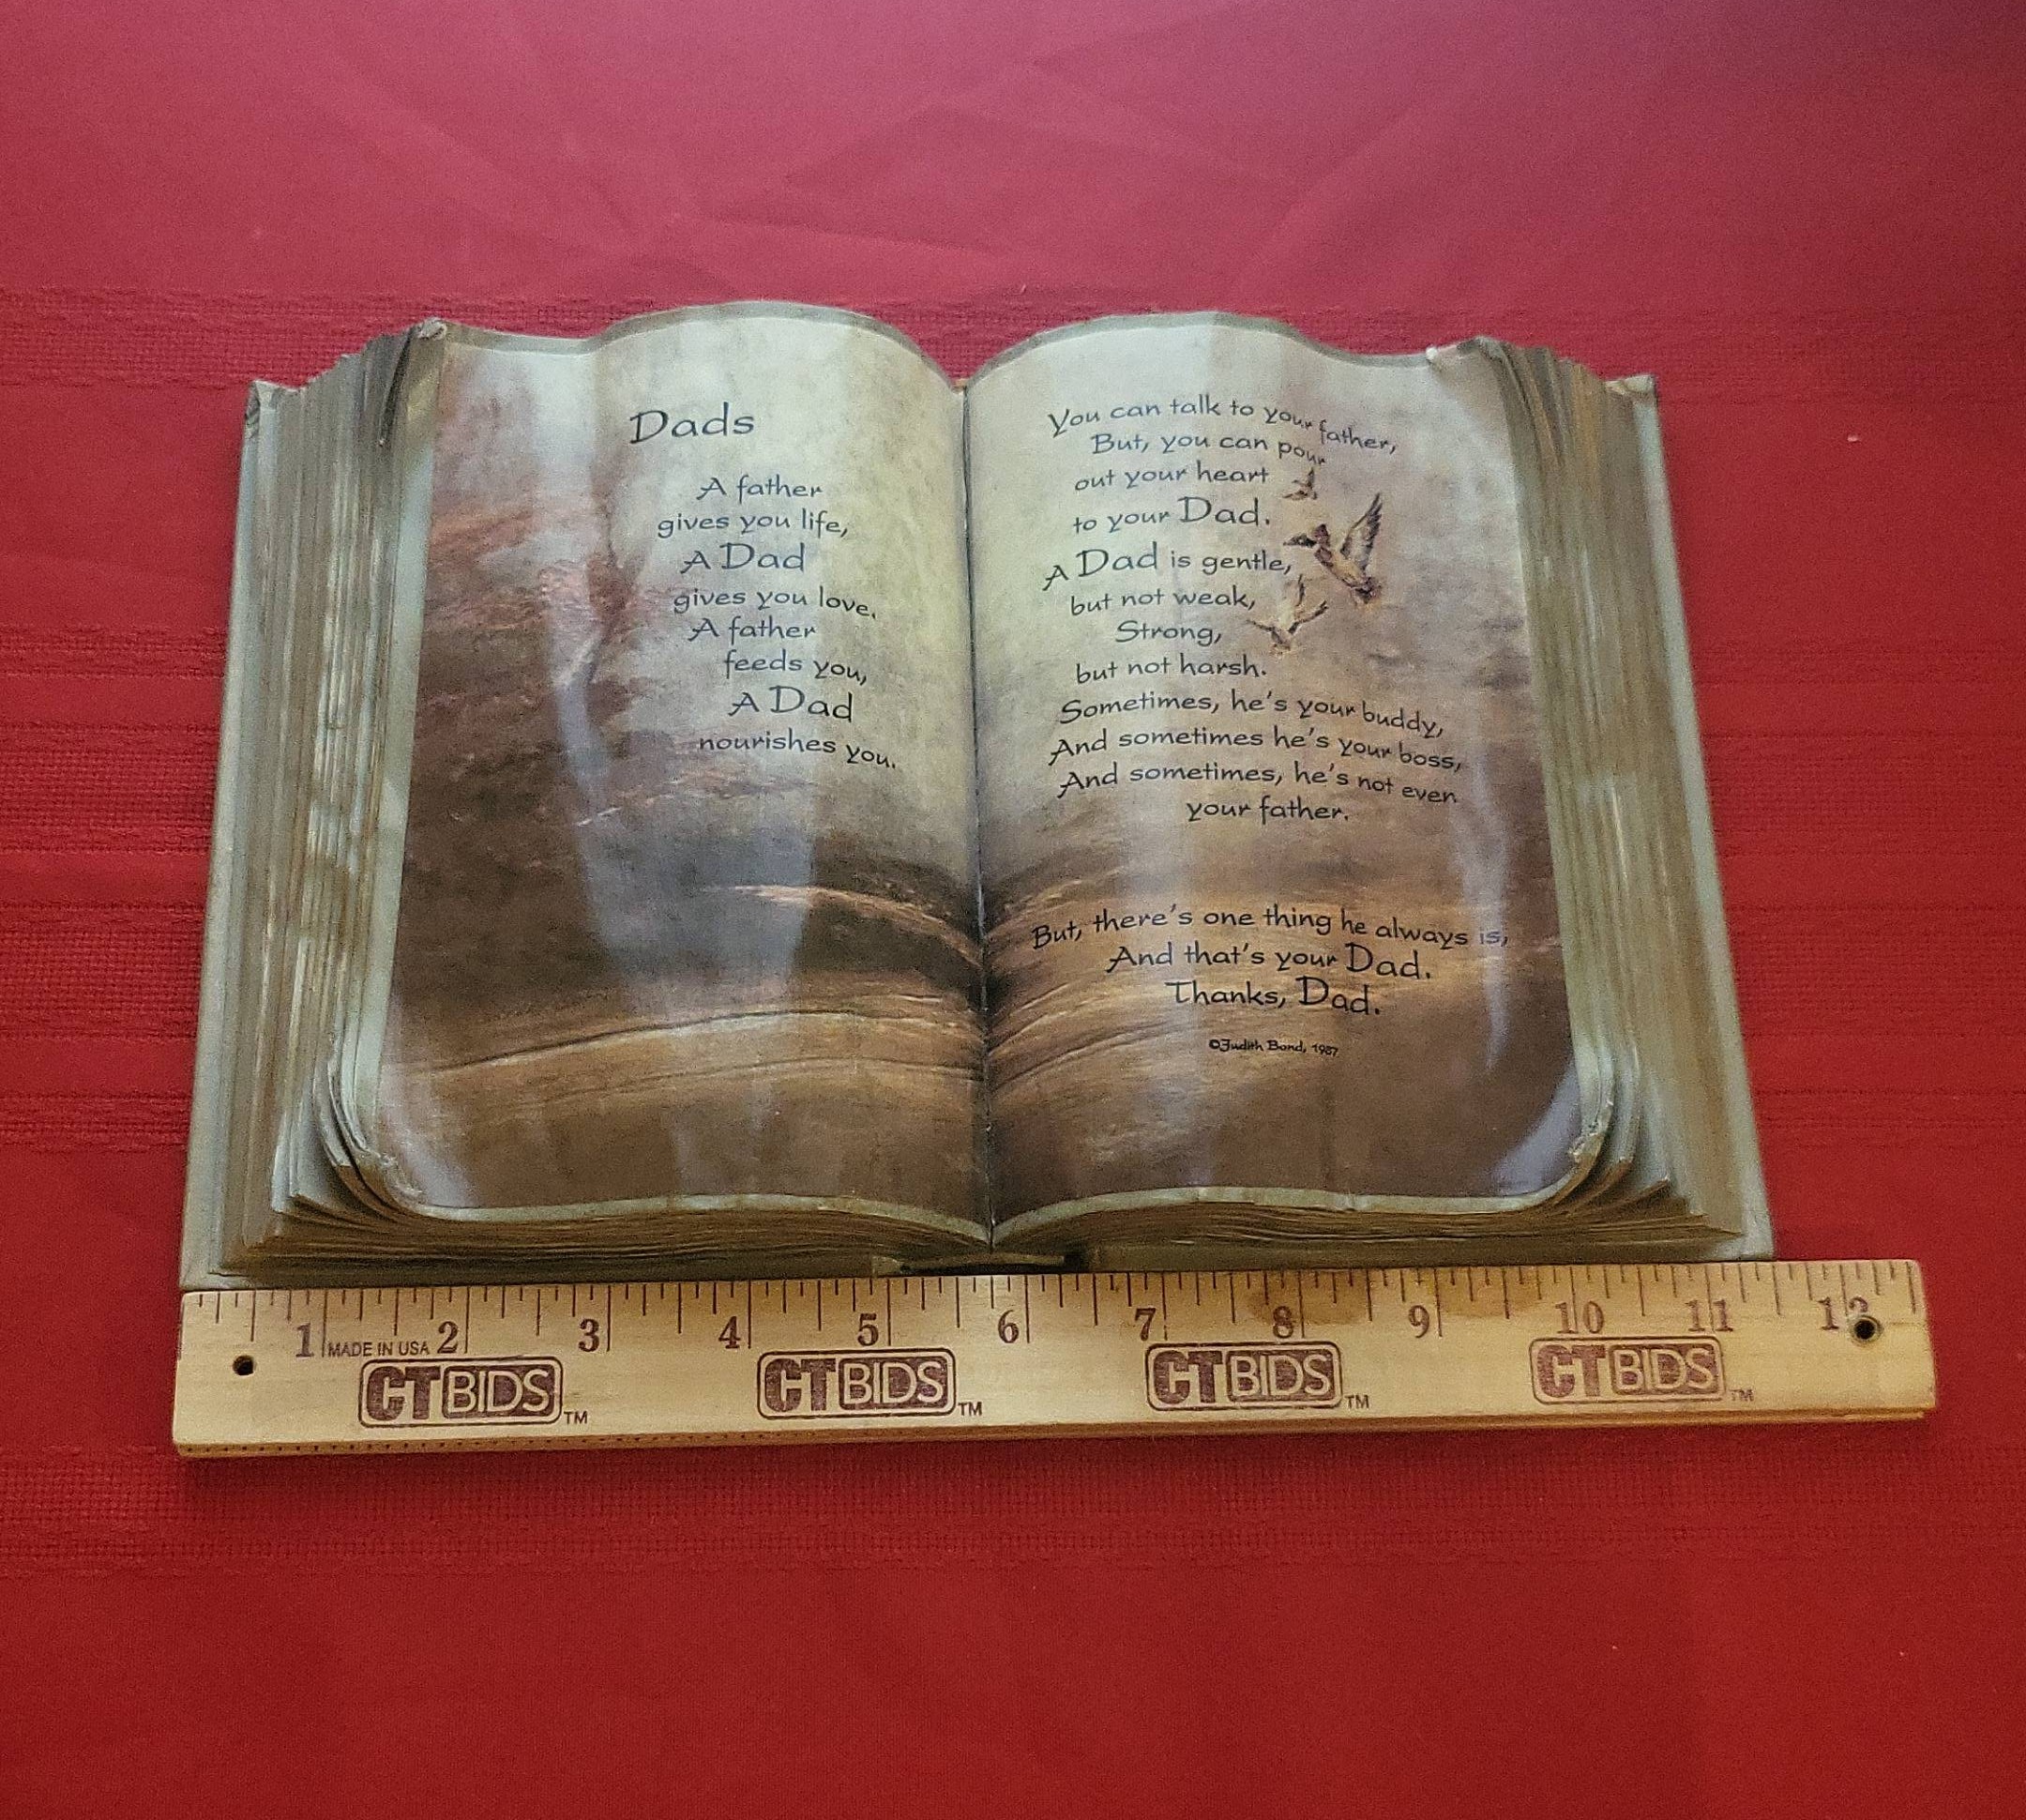 Dads
A father
gives you life,
A Dad
gives you love.
A father
feeds you,
A Dad
nourishes you.
You can talk to your father,
But, you can pour
out your heart
to your Dad.
A Dad is gentle,
but not weak,
Strong,
but not harsh.
Sometimes, he's your buddy,
And sometimes he's your boss,
And sometimes, he's not even
your father.
But, there's one thing he always is,
And that's your Dad.
Thanks, Dad.
©Judith Bond, 1987
1 2 3 4 5 6 7 8 9 10 11 12
MADE IN USA
CTBIDS™ CTBIDS™ CTBIDS™ CTBIDS™